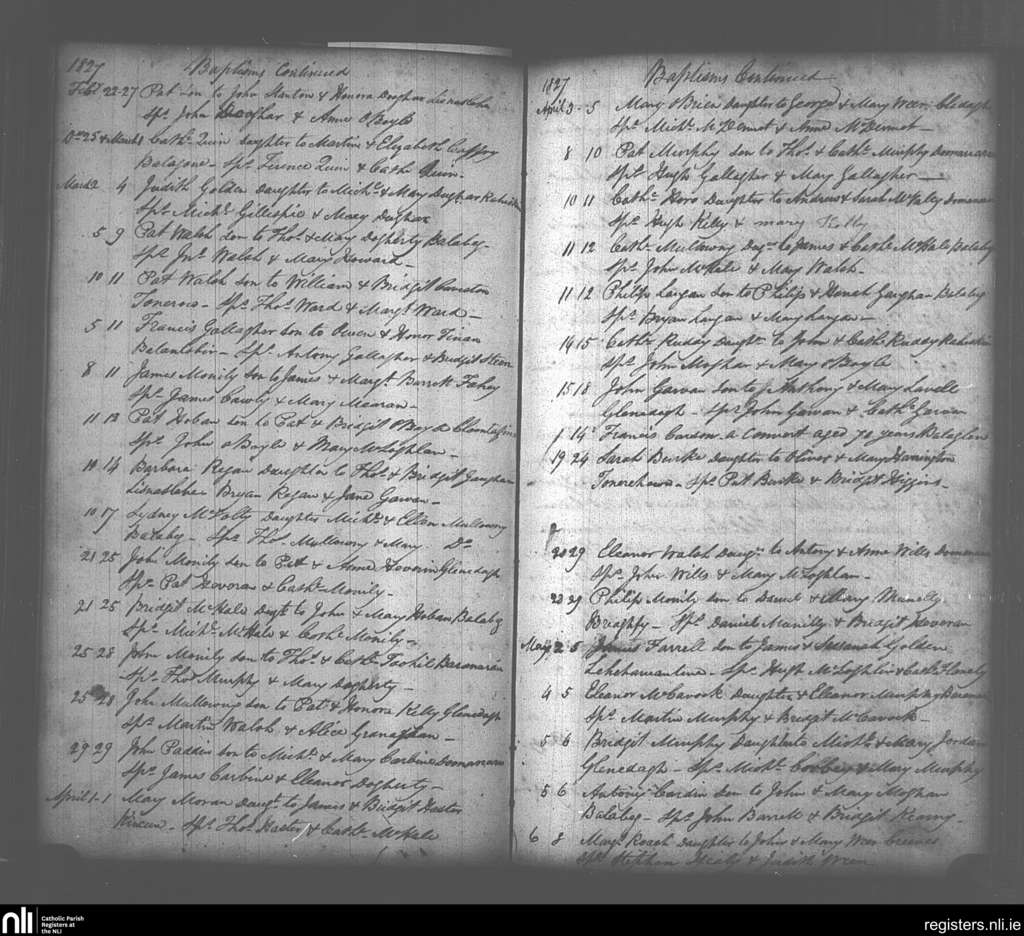 1827 Baptisms Continued
Feb. 22-27 Pat Son to John Stanton & Honora Doogher Lisnaslaha
Sps. John Dooghar & Anne O'Boyle
Do. 25 & March 1 Cathe. Quin daughter to Martin & Elizabeth Caffrey
Sps. Terence Quin & Cathe. Quin-
March 2 4 Judith Golden Daughter to Michl. & Mary Dughar
Sps. Michl. Gillespie & Mary Dughar
5 9 Pat Walsh Son to Thos. & Mary Dogherty Balaby-
Sps. Jno. Walsh & Mary Howard-
10 11 Pat Walsh Son to William & Bridgit
Sps. Thos. Ward & Margt. Ward-
5 11 Francis Gallagher Son to Owen & Honor
Sps. Antony Gallagher & Bridgit
8 11 James Monily Son to James & Margt. Barrett Fahey
Sps. James Cawly & Mary
11 13 Pat Hoban Son to Pat & Bridgit O'Boyle
Sps. John O'Boyle & Mary McLoghlan-
10 14 Barbara Regan Daughter to Thos. & Bridgit Gaughan
Lisnaslaha Bryan Regan & Jane Gawan-
10 17 Sydney McNolty Daughter Michl. & Ellen Mullowny
Balaby- Sps. Thos. Mullowny & Mary Do
21 25 John Monily Son to Pat & Anne Glenedagh
Sps. Pat & Cathe. Monily-
21 25 Bridgit McHale Daugt. to John & Mary Hoban Balaby
Sps. Michl. McHale & Cathe. Monily-
25 28 John Monily Son to Thos. & Cathe.
Sps. Thos. Murphy & Mary Dogherty-
25 28 John Mullowny Son to Pat. & Honora Kelly Glenedagh
Sps. Martin Walsh & Alice
29 29 John Paddin Son to Michl. & Mary Carbine
Sps. James Carbine & Eleanor Dogherty-
April 1-1 Mary Moran Daugt. to James & Bridgit Haster
Sps. Thos. Haster & Cathe. McHale
1827 Baptisms Continued
April 3-5 Mary O'Brien Daughter to George & Mary
Sps. Michl. McDermot & Anne McDermot-
8 10 Pat Murphy Son to Thos. & Cathe. Murphy
Sps. Hugh Gallagher & Mary Gallagher-
10 11 Cathe. Daughter to Andrew & Sarah
Sps. Hugh Kelly & Mary Kelly
11 12 Cathe. Mullowny Dagr. to James & Cathe. McHale Balaby
Sps. John McHale & Mary Walsh-
11 12 Philip Largan Son to Philip & Gaughan Balaby
Sps. Bryan Largan & Mary Largan-
14 15 Cathe. Ruddy Daught. to John & Cathe. Ruddy
Sps. John Moghan & Mary O'Boyle
15 18 John Gawan Son to Anthony & Mary Lavelle
Glenedagh- Sps. John Gawan & Cathe. Gawan
14 Francis a Convert aged 70 years
19 24 Sarah Burke Daughter to Oliver & Mary Harrington
Sps. Pat Burke & Bridgit Higgins-
29 Eleanor Walsh Daugr. to Antony & Anne Wills
Sps. John Wills & Mary McLoghlan-
29 Philip Monily Son to Daniel & Mary
Sps. Daniel & Bridgit
May 2 5 James Farrell Son to James & Susanah Golden
Sps. Hugh McLoghlin & Cathe.
4 5 Eleanor McCavock Daughter & Eleanor Murphy
Sps. Martin Murphy & Bridgt McCavock-
5 6 Bridgit Murphy Daughter to Michl. & Mary Jordan
Glenedagh- Sps. Michl. & Mary Murphy
5 6 Antony Cardin Son to John & Mary Moghan
Balaby- Sps. John Barrett & Bridgit Kearny-
6 8 Margt. Roach Daughter to John & Mary
Sps. Stephen Healy & Judith
nli
Catholic Parish
Registers at
the NLI
registers.nli.ie